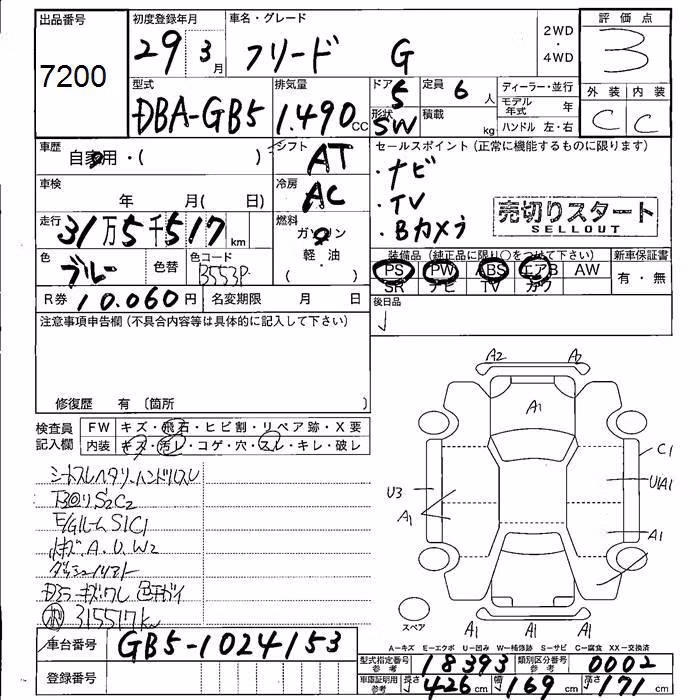 出品番号 初度登録年月 車名・グレード 2WD ・ 4WD 評価点
7200 29 3月 フリード G 3
型式 排気量 ドア 定員 ディーラー・並行 外装 内装
DBA-GB5 1.490 CC 5 6 人 モデル年式 年 C C
形状 SW 積載 kg ハンドル 左・右
車歴 自家用・( ) シフト AT セールスポイント(正常に機能するものに限ります)
・ナビ
車検 年 月( 日) 冷房 AC ・TV
売切りスタート
SELLOUT
走行 31万5千517 km 燃料 ガソリン ・Bカメラ
軽・油
( )
色 ブルー 色替 色コード B553P 装備品(純正品に限り○をつけて下さい) 新車保証書
PS PW ABS エアB AW 有・無
SR ナビ TV カワ
R券 10.060円 名変期限 月 日 後日品
注意事項申告欄(不具合内容等は具体的に記入して下さい)
修復歴 有 〔箇所
検査員記入欄 FW キズ・飛石・ヒビ割・リペア跡・X要
内装 キズ・汚レ・コゲ・穴・スレ・キレ・破レ
シートスレヘタリ・ハンドルスレ
S2C2
E/Gルーム S1C1
A.U.W2
315517km
A2
A1
C1
U3
U1A1
A1
A1
スペア
A1 A1 A1
A-キズ E-エクボ U-凹み W-補修跡 S-サビ C-腐食 XX-交換済
車台番号 GB5-1024153
型式指定番号 参考 18393 類別区分番号 参考 0002
登録番号 車庫証明用 参考 長さ 426 cm 幅 169 cm 高さ 171 cm